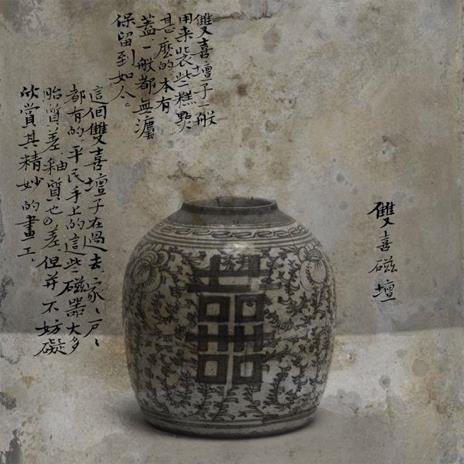 雙喜磁壇
雙喜壇子一般
用来裝些糕點
甚麽的本有
蓋一般都無灋
保留到如今。
這個雙喜壇子在過去家々户々
都有的平民手上的這些磁器大多
胎質差、釉質也差、但并不妨礙
欣賞其精妙的畫工、